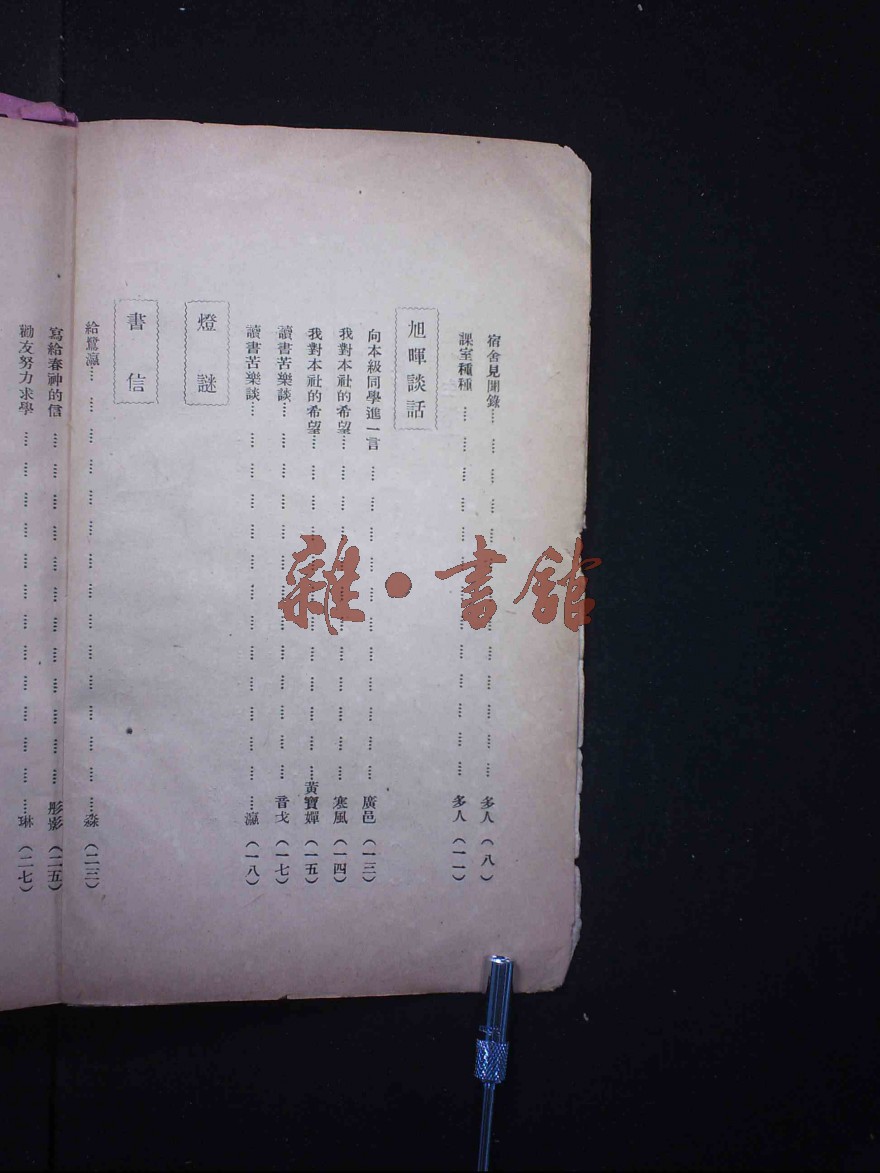 宿舍見聞錄…………多人（八）
課室種種…………多人（一一）
旭暉談話
向本級同學進一言…………廣邑（一三）
我對本社的希望…………寒風（一四）
我對本社的希望…………黃寶嬋（一五）
讀書苦樂談…………音戈（一七）
讀書苦樂談…………瀛（一八）
燈謎
書信
給鷺瀛…………淼（二三）
寫給春神的信…………彤影（二五）
勸友努力求學…………琳（二七）
雜·書館